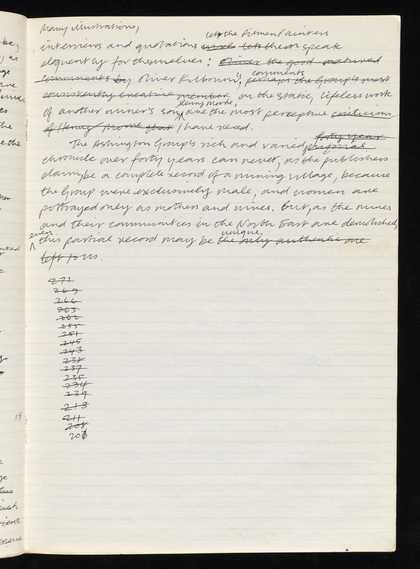 many illustrations,
let the Pitmen Painters
interviews and quotations them speak
eloquently for themselves: Oliver the good natured
comments
comments by Oliver Kilbourn, perhaps the Group's most
consistently creative member on the static, lifeless work
Henry Moore,
of another miner's son, are the most perceptive criticism
of Henry Moore that I have read.
forty year
The Ashington Group's rich and varied original
chronicle over forty years can never, as the publishers
claim, be a complete record of a mining village, because
the Group were exclusively male, and women are
portrayed only as mothers and wives. But, as the mines
and their communities in the North East are demolished,
even unique
this partial record may be the only authentic one
left to us.
271
269
266
203
202
255
251
245
243
238
237
235
234
229
213
211
208
206